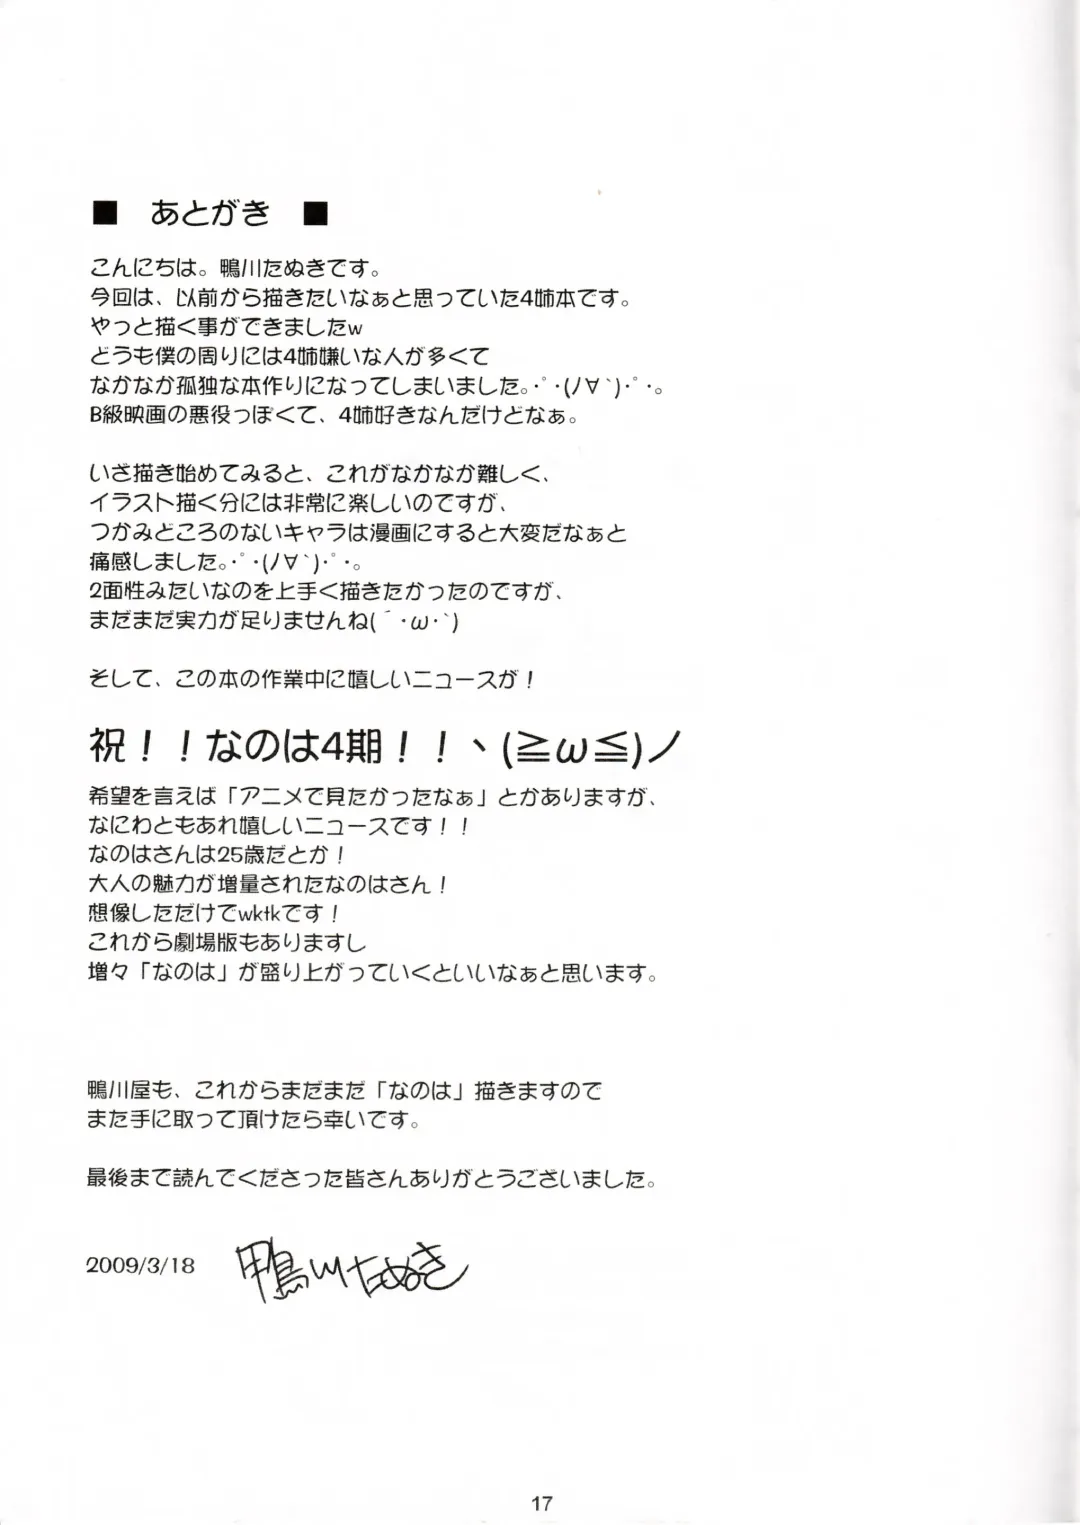 ■ あとがき ■
こんにちは。鴨川たぬきです。
今回は、以前から描きたいなぁと思っていた4姉本です。
やっと描く事ができましたw
どうも僕の周りには4姉嫌いな人が多くて
なかなか孤独な本作りになってしまいました｡･ﾟ･(ﾉ∀`)･ﾟ･｡
B級映画の悪役っぽくて、4姉好きなんだけどなぁ。
いざ描き始めてみると、これがなかなか難しく、
イラスト描く分には非常に楽しいのですが、
つかみどころのないキャラは漫画にすると大変だなぁと
痛感しました｡･ﾟ･(ﾉ∀`)･ﾟ･｡
2面性みたいなのを上手く描きたかったのですが、
まだまだ実力が足りませんね(´･ω･`)
そして、この本の作業中に嬉しいニュースが！
祝！！なのは4期！！ヽ(≧ω≦)ノ
希望を言えば「アニメで見たかったなぁ」とかありますが、
なにわともあれ嬉しいニュースです！！
なのはさんは25歳だとか！
大人の魅力が増量されたなのはさん！
想像しただけでwktkです！
これから劇場版もありますし
増々「なのは」が盛り上がっていくといいなぁと思います。
鴨川屋も、これからまだまだ「なのは」描きますので
また手に取って頂けたら幸いです。
最後まで読んでくださった皆さんありがとうございました。
2009/3/18 鴨川たぬき
17